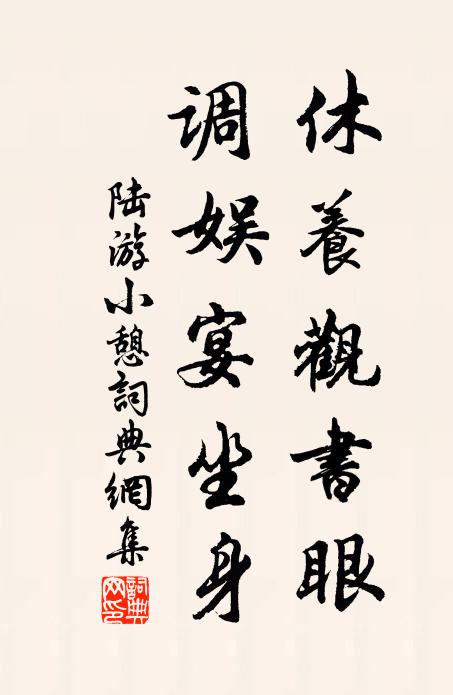 休養觀書眼
調娛宴坐身
陆游小憩詞典網集
詞典
网印